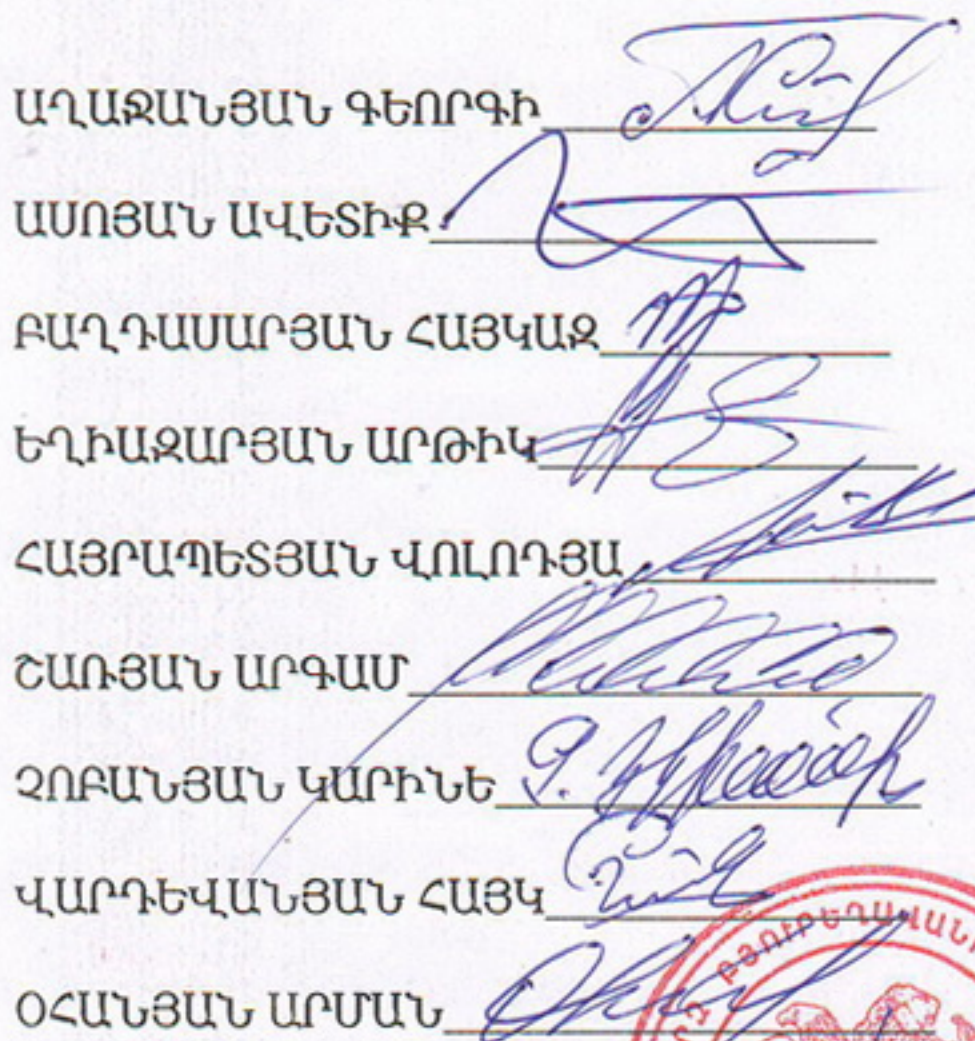 ԱՂԱՋԱՆՅԱՆ ԳԵՈՐԳԻ
ԱՍՈՅԱՆ ԱՎԵՏԻՔ
ԲԱՂԴԱՍԱՐՅԱՆ ՀԱՅԿԱԶ
ԵՂԻԱԶԱՐՅԱՆ ԱՐԹԻԿ
ՀԱՅՐԱՊԵՏՅԱՆ ՎՈԼՈԴՅԱ
ՇԱՌՅԱՆ ԱՐԳԱՄ
ՉՈԲԱՆՅԱՆ ԿԱՐԻՆԵ
ՎԱՐԴԵՎԱՆՅԱՆ ՀԱՅԿ
ՕՀԱՆՅԱՆ ԱՐՄԱՆ